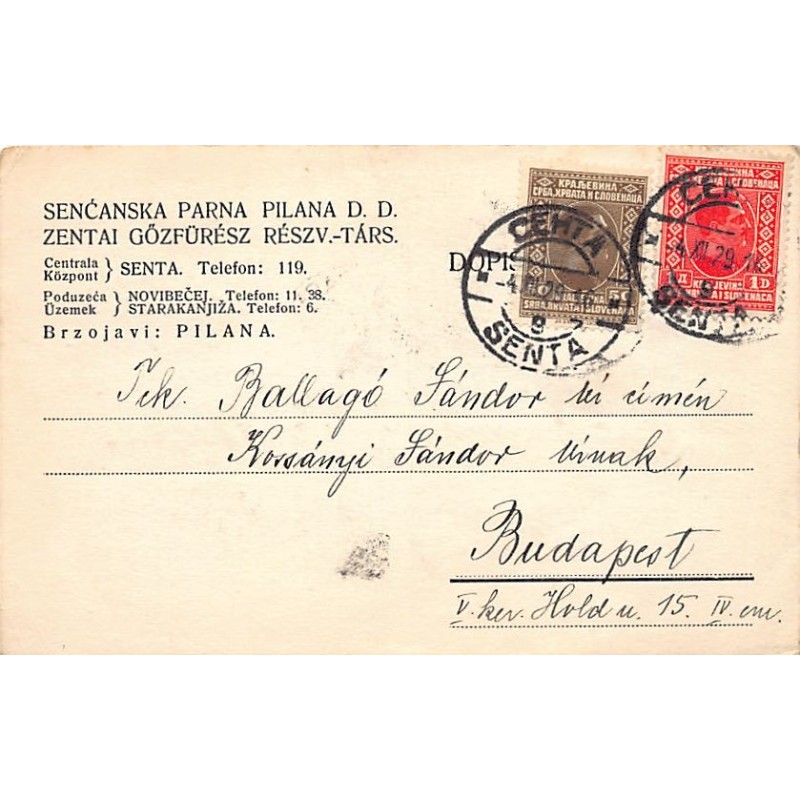 SENĆANSKA PARNA PILANA D. D.
ZENTAI GŐZFÜRÉSZ RÉSZV.-TÁRS.
Centrala
Központ } SENTA. Telefon: 119.
Poduzeća } NOVIBEČEJ. Telefon: 11. 38.
Üzemek } STARAKANJIŽA. Telefon: 6.
Brzojavi: PILANA.
DOPIS
КРАЉЕВИНА
СРБА, ХРВАТА И СЛОВЕНАЦА
SRBA, HRVATA I SLOVENACA
1D
СЕНТА
SENTA
SENTA
Tek. Ballagó Sándor úr címén
Kossányi Sándor úrnak,
Budapest
V. ker. Hold u. 15. IV. em.